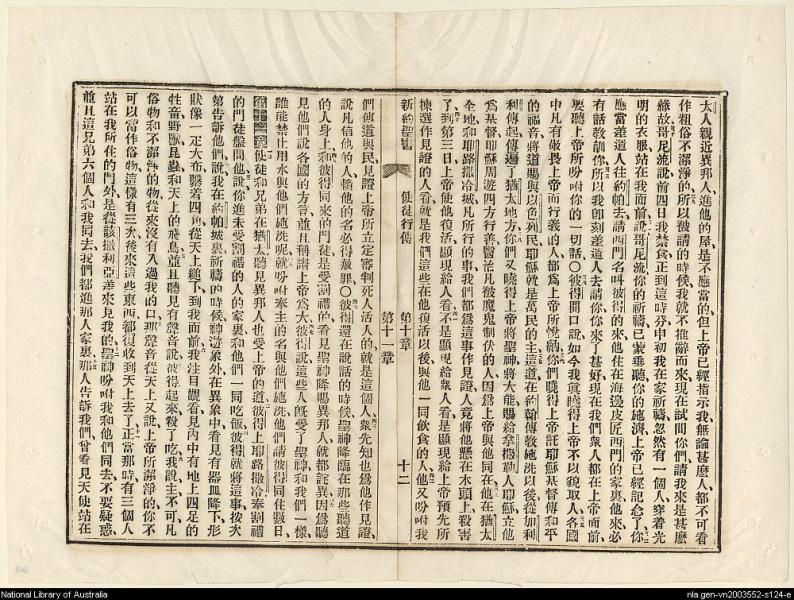 大人親近異邦人進他的屋是不應當的但上帝已經指示我無論甚麼人都不可看
作粗俗不潔淨的所以被請的時候我就不推辭而來現在試問你們請我來是甚麼
緣故哥尼流說前四日我禁食正到這時分申初我在家祈禱忽然有一個人穿着光
明的衣服站在我面前說哥尼流你的祈禱已蒙垂聽你的施濟上帝已經記念了你
應當差遣人往約帕去請西門名叫彼得的來他住在海邊皮匠西門的家裏他來必
有話教訓你所以我卽刻差遣人去請你你來了甚好現在我們衆人都在上帝面前
要聽上帝所吩咐你的一切話○彼得開口說如今我眞曉得上帝不以貌取人各國
中凡有敬畏上帝而行義的人都爲上帝所悅納你們曉得上帝託耶穌基督傳和平
的福音將道賜與以色列民耶穌就是萬民的主這道在約翰傳教施洗以後從加利
利傳起傳遍了猶太地方你們又曉得上帝將聖神將大能賜給拿撒勒人耶穌立他
爲基督耶穌周遊四方行善醫治凡被魔鬼制伏的人因爲上帝與他同在他在猶太
全地和耶路撒冷城凡所行的事我們都爲這事作見證人竟將他懸在木頭上殺害
了到第三日上帝使他復活顯現給人看不是顯現給衆人看是顯現給上帝預先所
揀選作見證的人看就是我們這些在他復活以後與他一同飲食的人他又吩咐我
新約聖書 使徒行傳 第十章 第十一章 十二
們傳道與民見證上帝所立定審判死人活人的就是這個人衆先知也爲他作見證
說凡信他的人賴他的名必得赦罪○彼得還在說話的時候聖神降臨在那些聽道
的人身上和彼得同來的門徒是受割禮的看見聖神降賜異邦人就都詫異因爲聽
見他們說各國的方言並且稱讚上帝爲大彼得說這些人旣受了聖神和我們一樣
誰能禁止用水與他們施洗呢就吩咐奉主的名與他們施洗他們請彼得同住數日
第十一章使徒和兄弟在猶太聽見異邦人也受上帝的道彼得上耶路撒冷奉割禮
的門徒盤問他說你進未受割禮的人的家裏和他們一同吃飯彼得就將這事按次
第告訴他們說我在約帕城裏祈禱的時候神遊象外在異象中看見有器皿降下形
狀像一疋大布繫着四角從天上縋下到我面前我注目觀看見內中有地上四足的
牲畜野獸昆蟲和天上的飛鳥並且聽見有聲音說彼得起來殺了吃我說主不可凡
俗物和不潔淨的物從來沒有入過我的口那聲音從天上又說上帝所潔淨的你不
可以當作俗物這樣有三次後來這些東西都復收到天上去了正當那時有三個人
站在我所住的門外是從該撒利亞差來見我的聖神吩咐我和他們同去不要疑惑
並且這兄弟六個人和我同去我們都進那人家裏那人告訴我們曾看見天使站在
National Library of Australia
nla.gen-vn2003552-s124-e